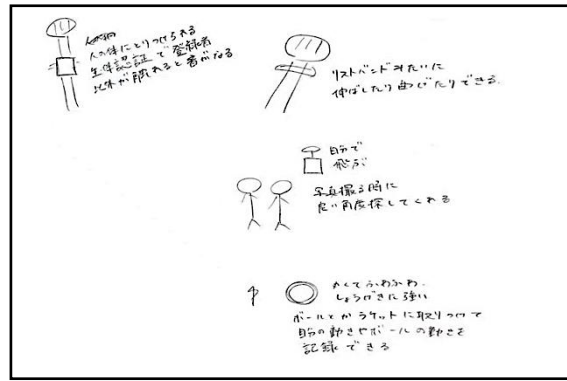 人の体にとりつけられる
生体認証で登録者
以外が触れると音がなる
リストバンドみたいに
伸ばしたり曲げたりできる
自分で
飛ぶ
写真撮る時に
良い角度探してくれる
かくてふわふわ
しょうげきに強い
ボールとかラケットに取りつけて
自分の動きやボールの動きを
記録できる